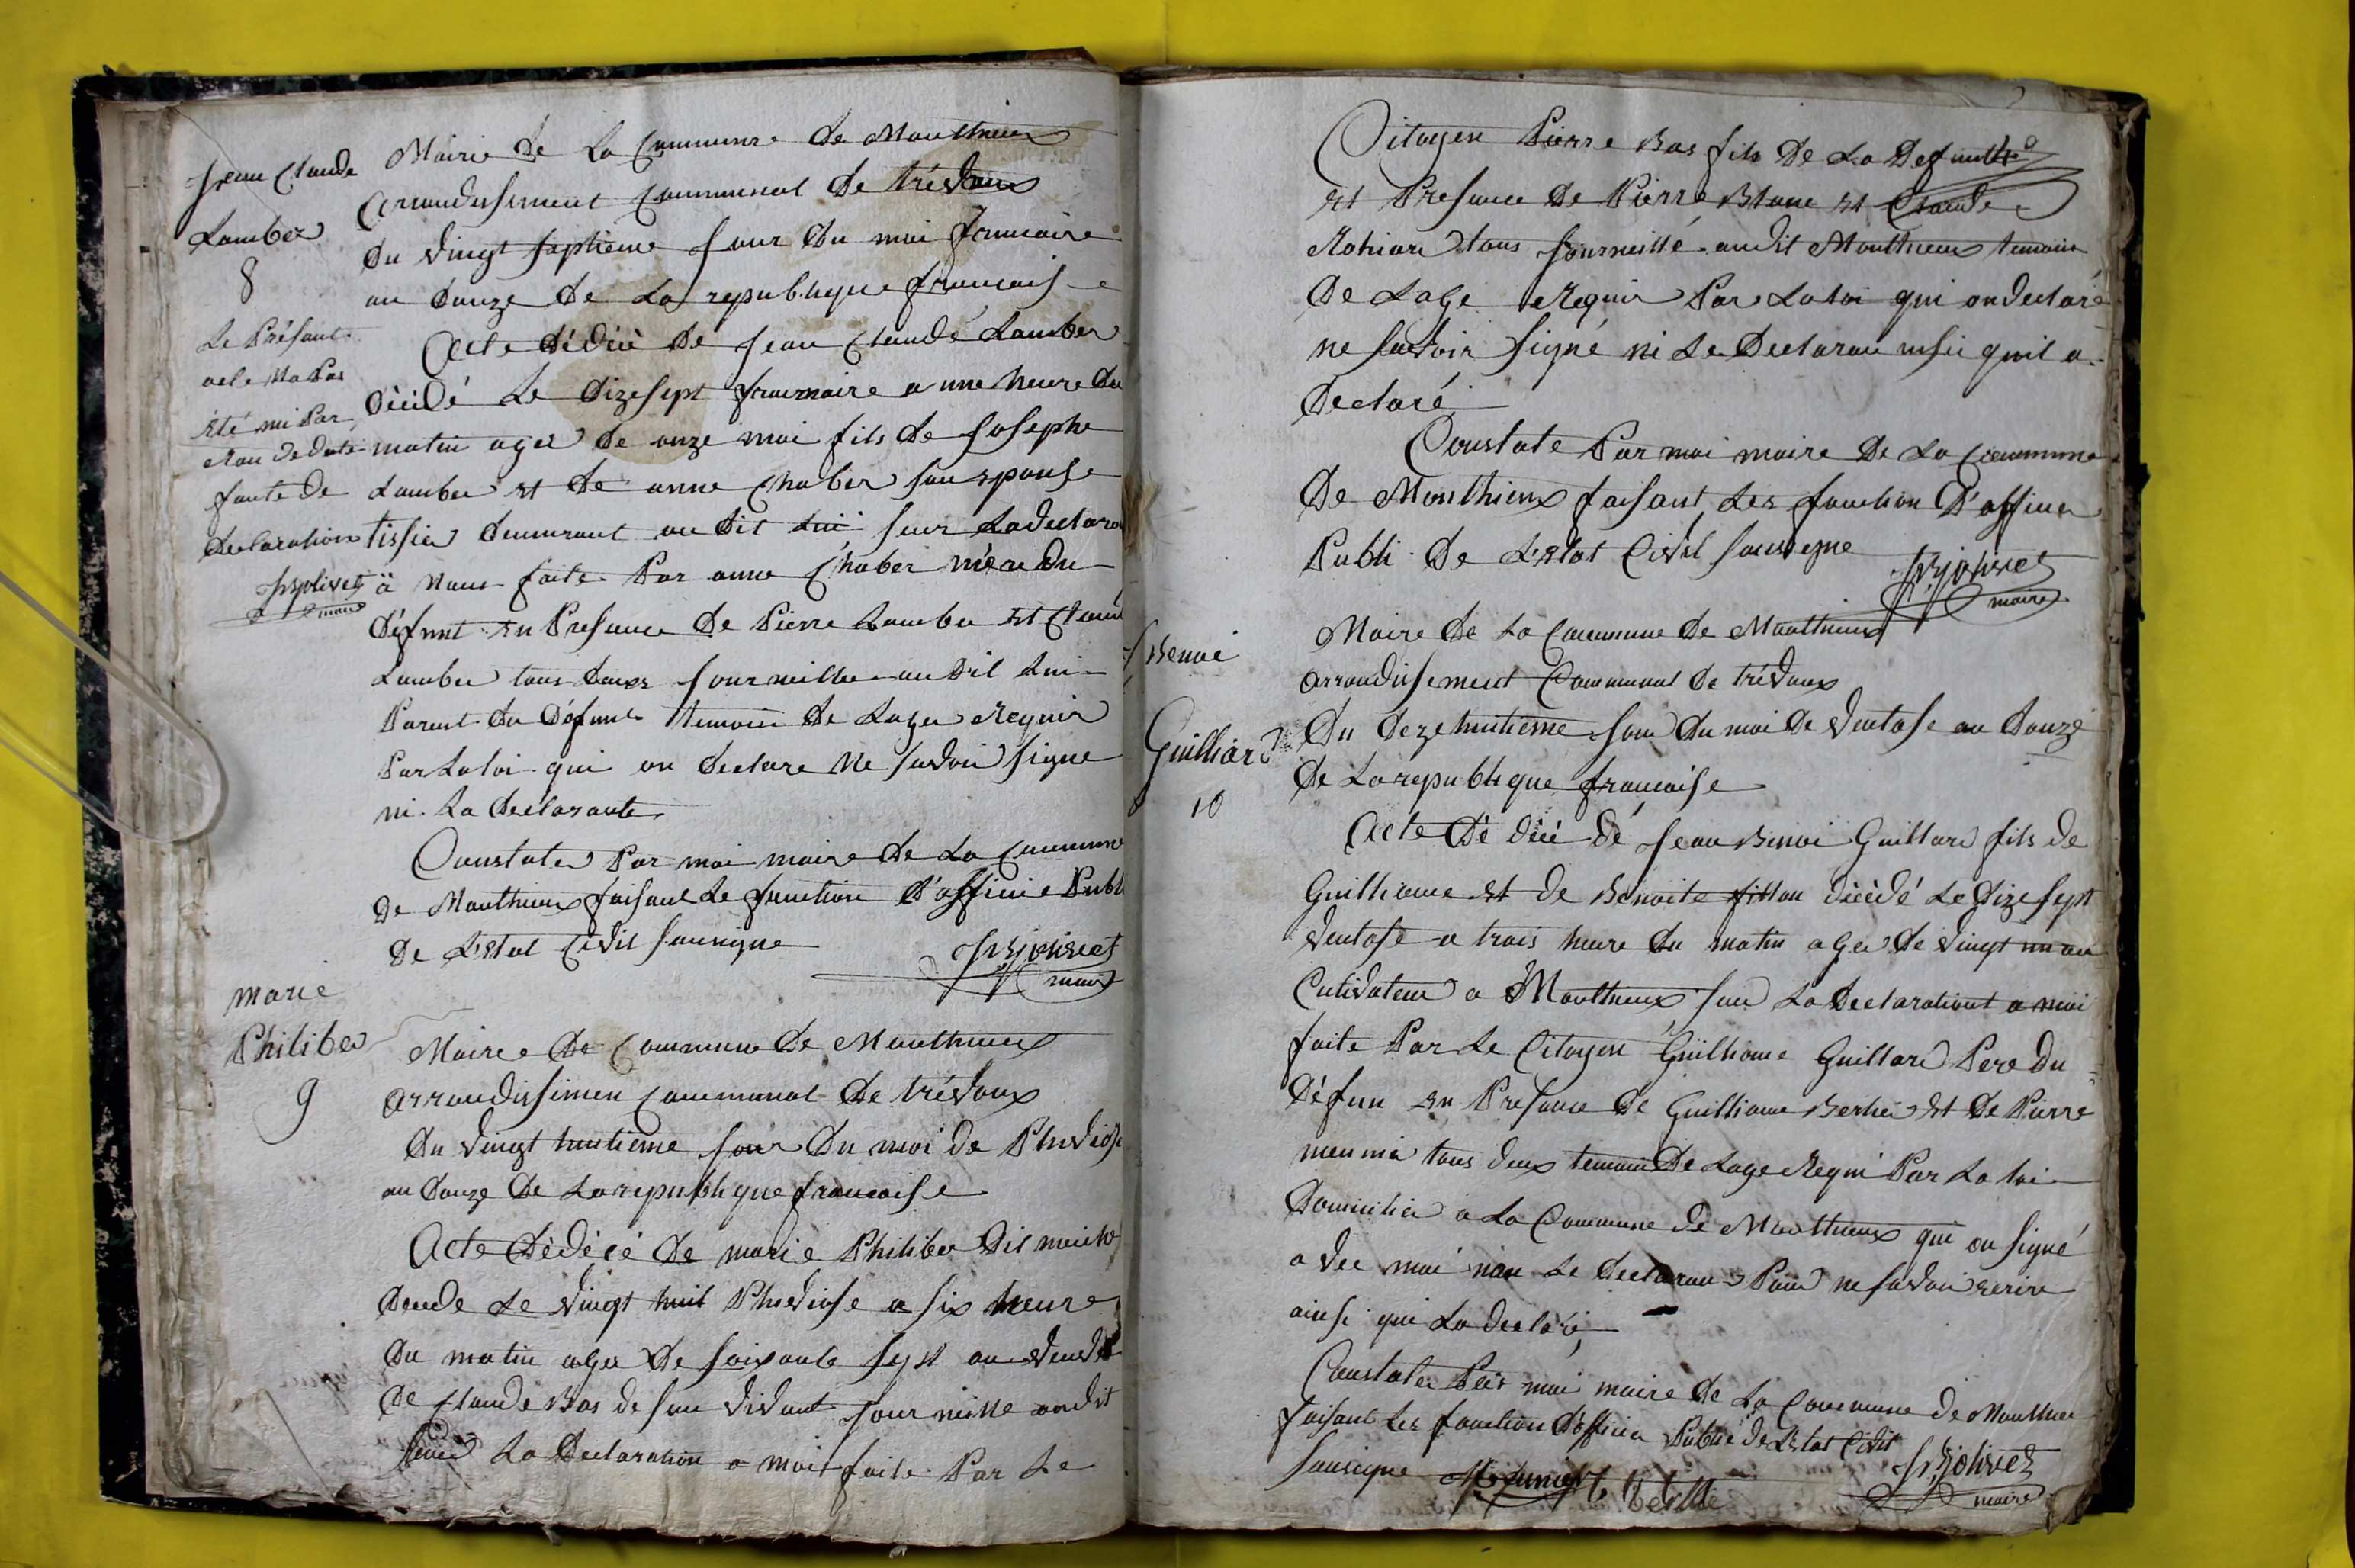 Jean Claude
Lamber
8
Le Présant
acte Na Pas
été mi Par
ran de date
faute de
declaration
Mairie de La Commune de Monthieux
arrondissiment Communal de trévoux
du vingt septieme Jour du moi frimaire
an douze de La republique francaise
Acte dédicè de Jean Claude Lamber
dècidé Le dizesept frimaire a une heure du
matin agee de onze moi fils de Josephe
Lamber et de anne Chaber son epouse
tissier demurant au dit Lui sur La declara
à Nous faite Par anne Chaber mère du
défunt en Presance de Pierre Lamber et Claude
Lamber tous deux Journeille au dit Lui
Parent du défunt temoin de Lager Requir
Par La loi qui on declare Ne savoir signe
ni La declarante
Constater Par moi maire de La Commune
de Monthieux faisant Le fonction d'officie Publi
de L'etat Civil sousigne
maire
marie
Philiber
9
Mairie de Commune de Monthieux
arrondissimen Communal de trévoux
du vingt huitieme Jour du moi de Pluviose
an douze de La republique francaise
Acte dèdécé de marie Philiber dit
decede Le vingt huit Pluviose a six heure
du matin agee de soixante sept an veuve
de Claude Bas de son vivant Journeille audit
La declaration a moi faite Par Le
Citoyen Pierre Bas fils de La Defunthe
et Presance de Pierre Blanc et Claude
tous Journeillé audit Monthieux temoin
de Lage Requir Par La loi qui on declaré
ne savoir signé ni Le Declaran insi quil a
declaré
Constate Par moi maire de La Commune
de Monthieux faisant Les fonction D'officier
Publi de L'etat Civil sousigne
maire
Benoi
Guilliard
10
Maire de La Commune de Monthieux
arrondissement Communal de trévoux
du dezehuitième Jour du moi de ventose an douze
de La republique francaise
Acte dè décé dé Jean Binoi Guillard fils de
Guilliaume et de Benoite fillon décèdé Le dizesept
ventose a trois heure du matin agee de vingt un an
Cultivateur a Monthieux sur La declarationt a moi
faite Par Le Citoyen Guilliaume Guillard Pere du
Défun en Presance de Guilliaume Berlie et de Pierre
meunié tous deux temoin de Lage Requi Par La loi
domicilier a La Commune de Monthieux qui on signé
avec moi non Le declaran Pour ne savoir ecrire
ainsi qui La declaré
Constater Par moi maire de La Commune de Monthieu
faisant Les fonction d'officier Publie de L'etat Civil
sousigne
maire